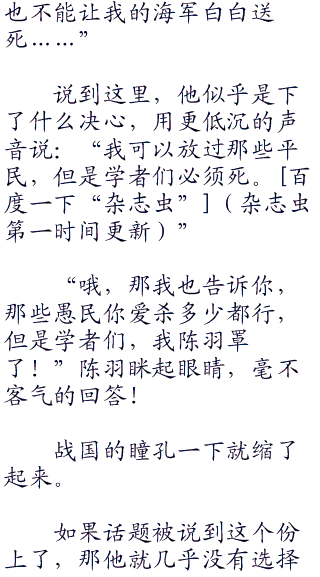 也不能让我的海军白白送
死……”
说到这里，他似乎是下
了什么决心，用更低沉的声
音说：“我可以放过那些平
民，但是学者们必须死。[百
度一下“杂志虫”]（杂志虫
第一时间更新）”
“哦，那我也告诉你，
那些愚民你爱杀多少都行，
但是学者们，我陈羽罩
了！”陈羽眯起眼睛，毫不
客气的回答！
战国的瞳孔一下就缩了
起来。
如果话题被说到这个份
上了，那他就几乎没有选择